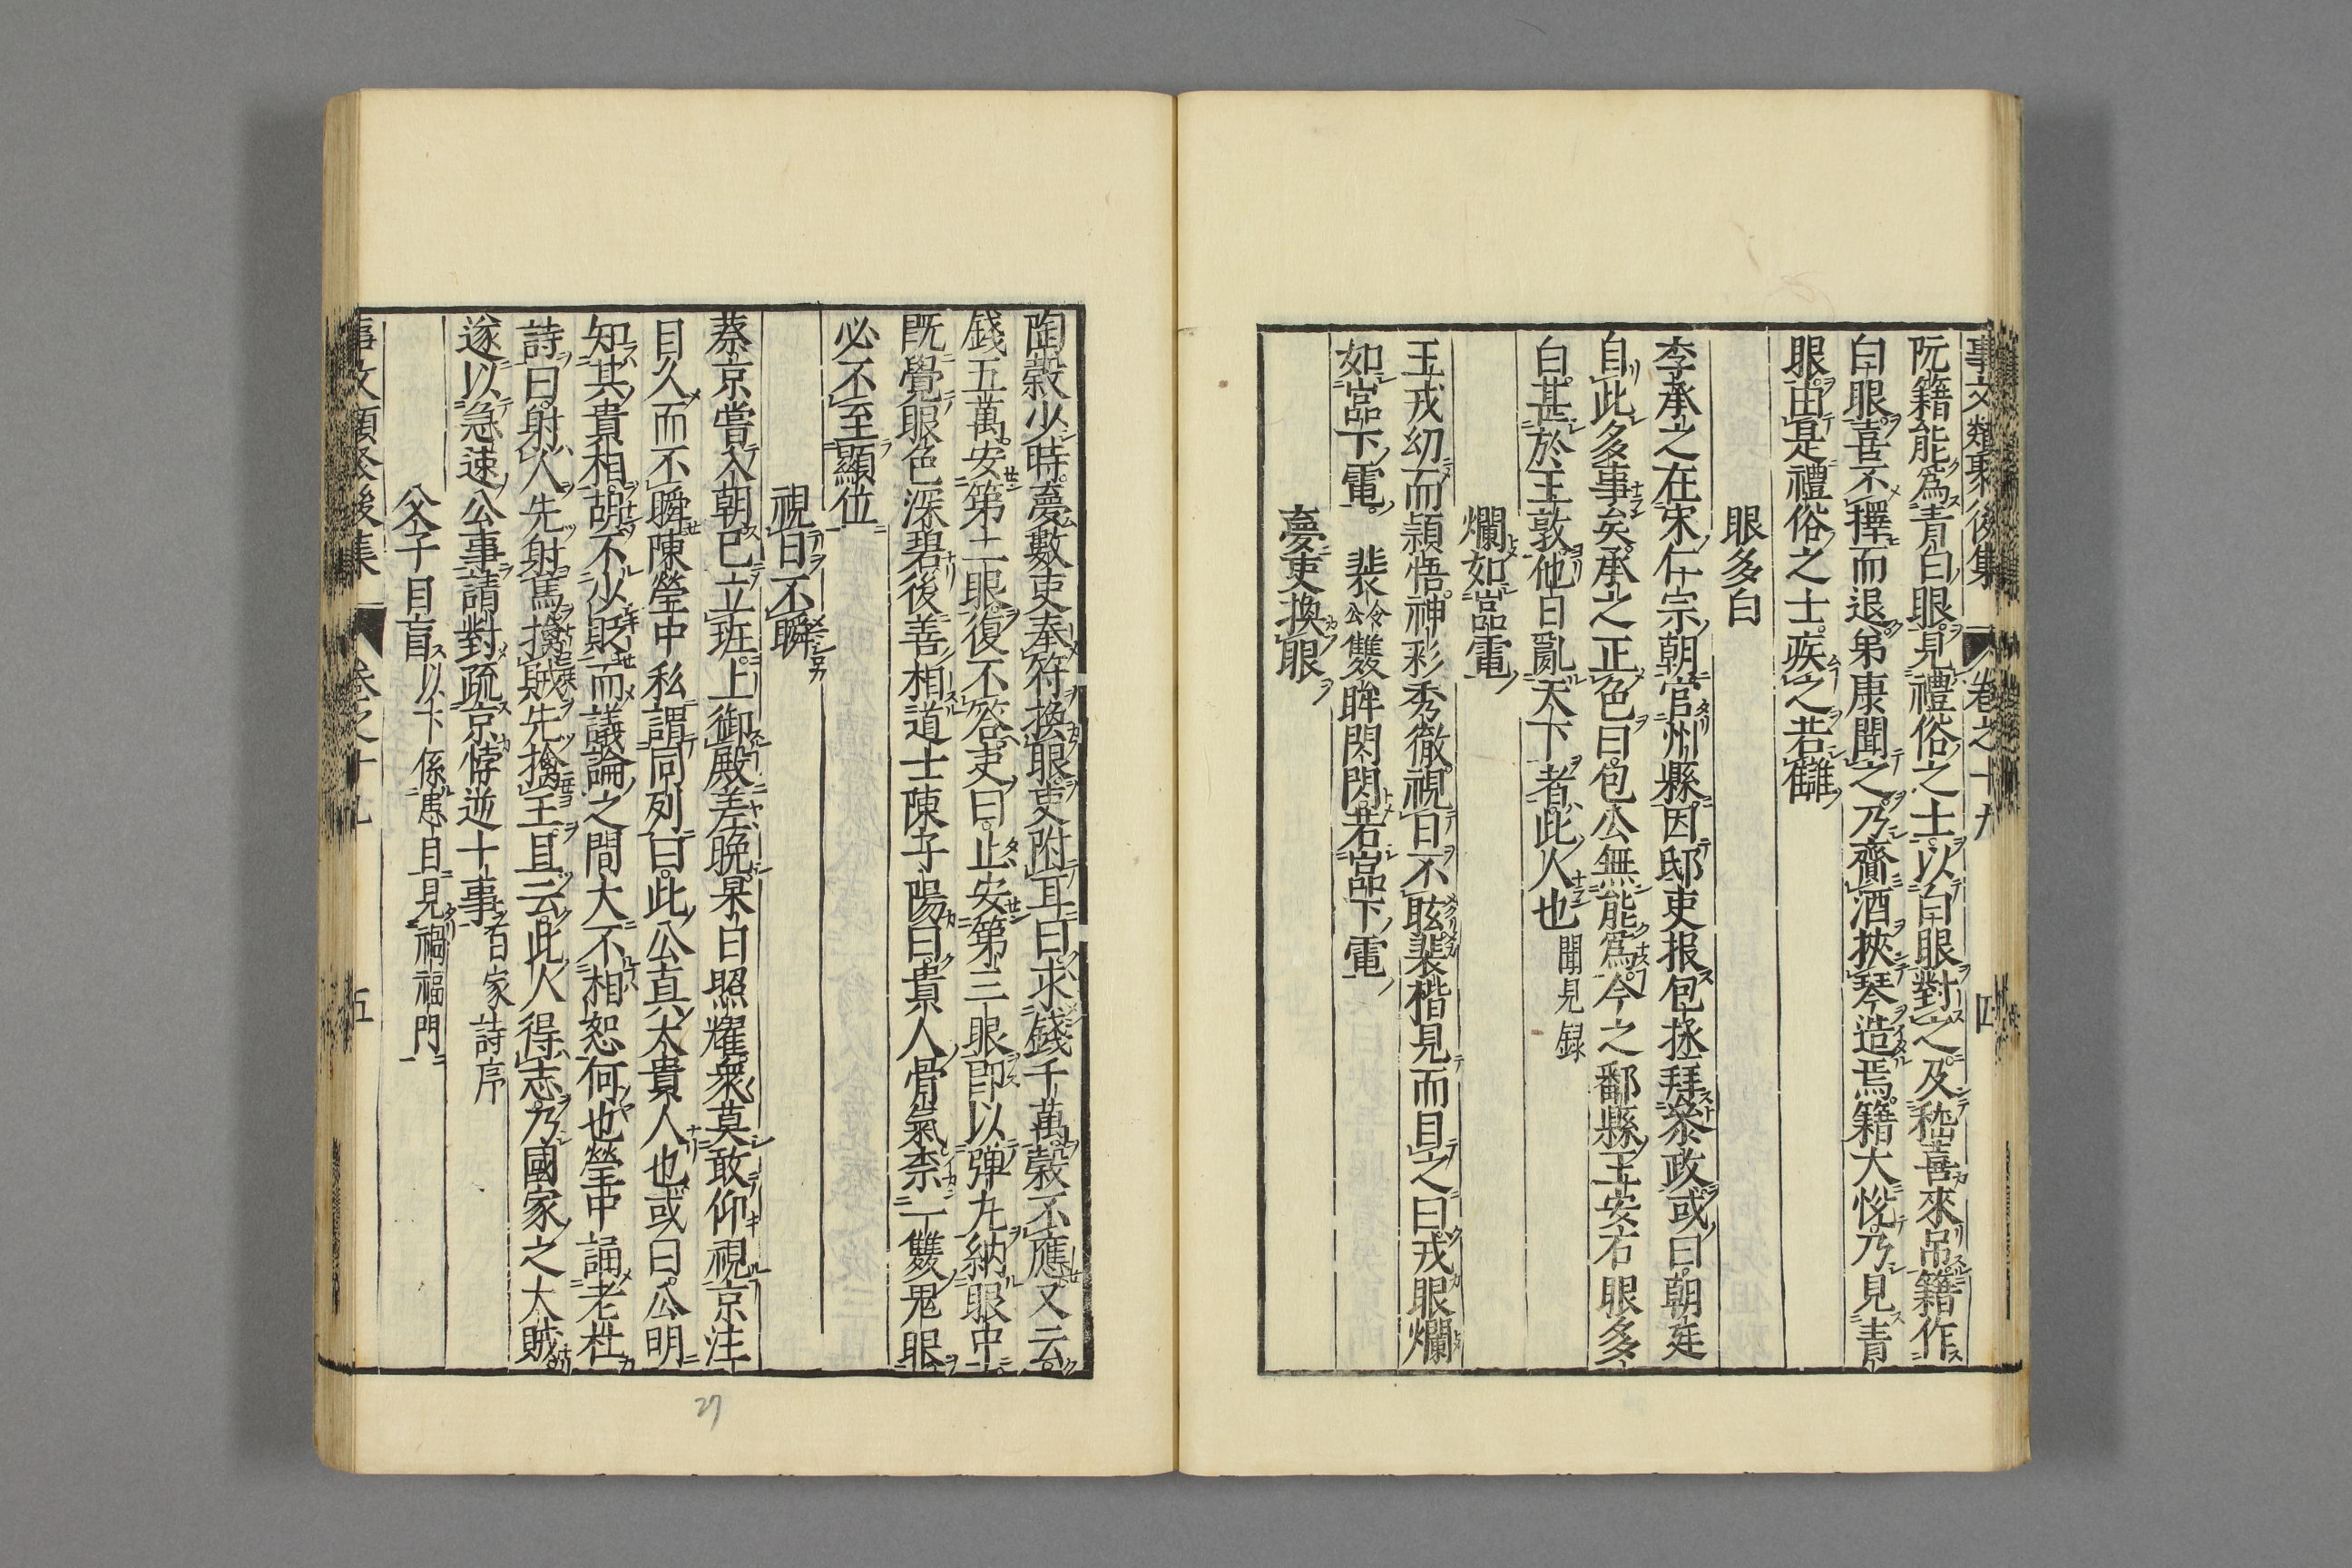 事文類聚後集 卷之十九 四
阮籍能爲青白眼見禮俗之士以白眼對之及嵇喜來吊籍作
白眼喜不懌而退弟康聞之乃齎酒挾琴造焉籍大悅乃見青
眼由是禮俗之士疾之若讎
眼多白
李承之在宋仁宗朝官州縣因邸吏报包拯拜叅政或曰朝廷
自此多事矣承之正色曰包公無能爲今之鄱縣王安石眼多
白甚於王敦他日亂天下者此人也聞見録
爛如嵓電
王戎幼而頴悟神彩秀徹視日不眩裴楷見而目之曰戎眼爛
如嵓下電 裴令公雙眸閃閃若嵓下電
夢吏換眼
陶穀少時夢數吏奉符換眼吏附耳曰求錢千萬穀不應又云
錢五萬安第二眼復不答吏曰止安第三眼即以弾丸納眼中
既覺眼色深碧後善相道士陳子陽曰貴人骨氣柰一雙鬼眼
必不至顯位
視日不瞬
蔡京嘗入朝已立班上御殿差晚杲日照耀衆莫敢仰視京注
目久而不瞬陳瑩中私謂同列曰此公真太貴人也或曰公明
知其貴相胡不少貶而議論之間大不相恕何也瑩中誦老杜
詩曰射人先射馬擒賊先擒王且云此人得志乃國家之大賊
遂以急速公事請對疏京悖逆十事百家詩序
父子目盲以下係患目見禍福門
事文類聚後集 卷之十九 五
27